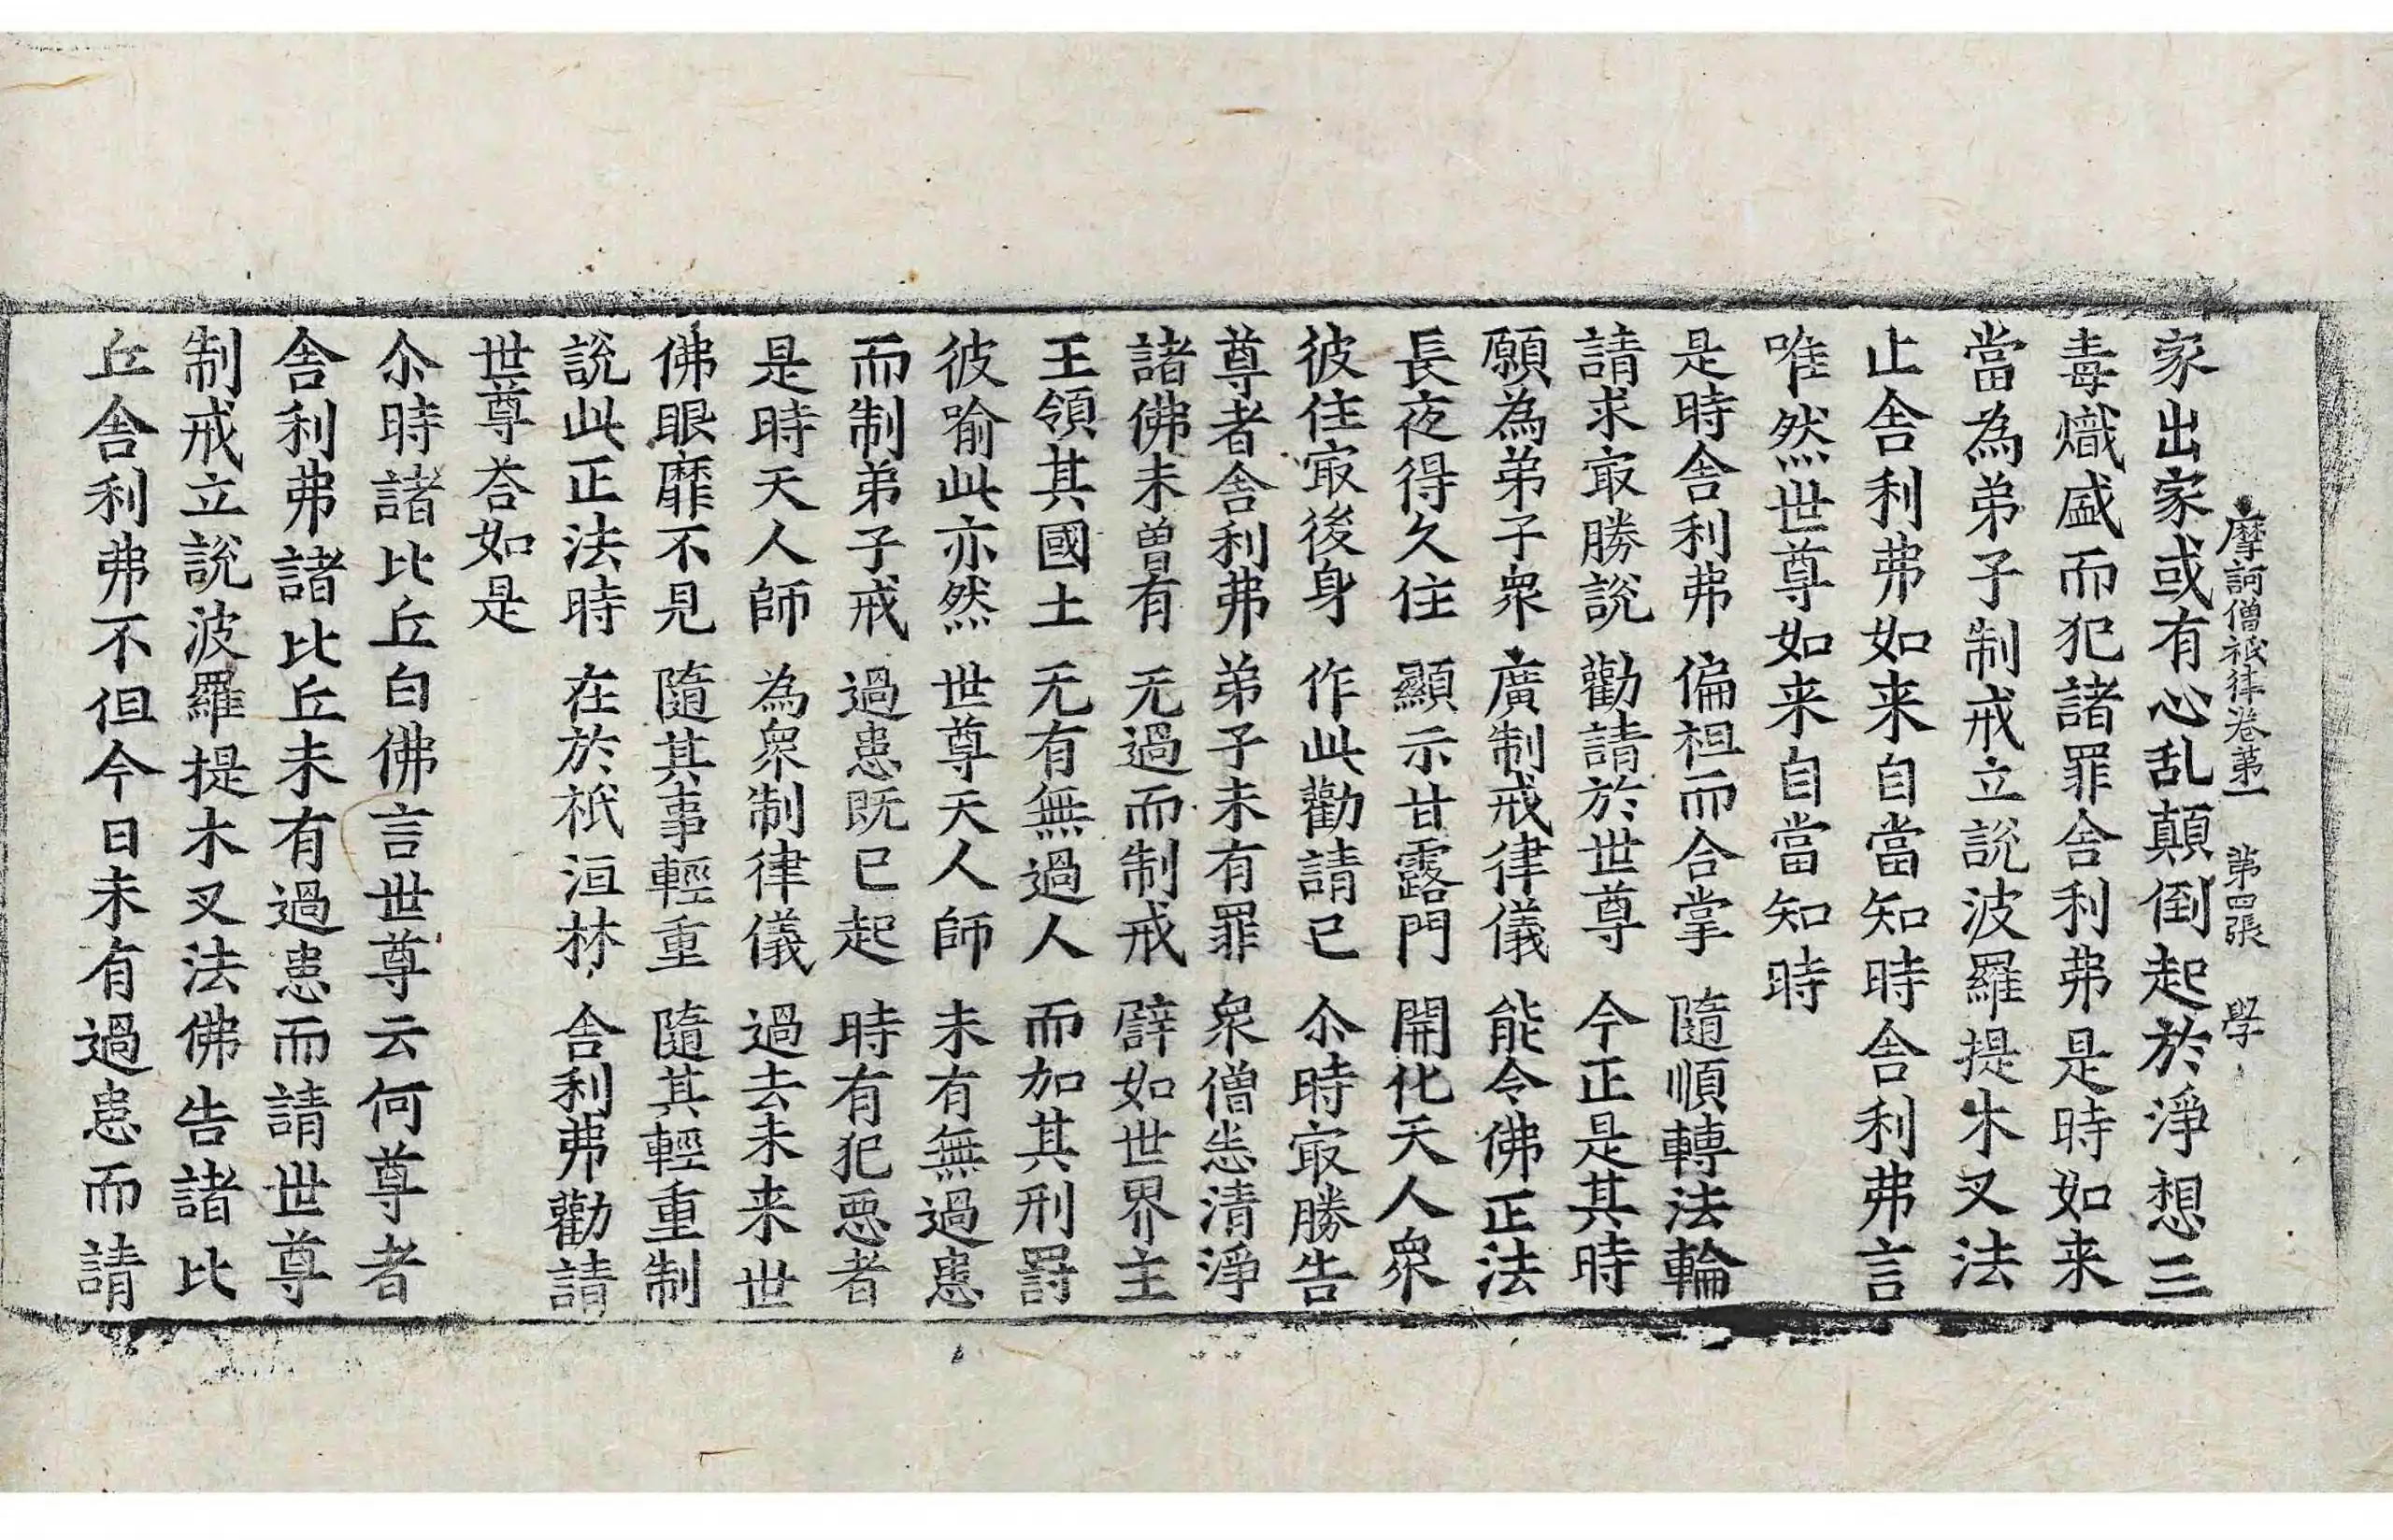 摩訶僧祇律卷第一 第四張 學
家出家或有心乱顛倒起於淨想三
毒熾盛而犯諸罪舍利弗是時如来
當為弟子制戒立説波羅提木叉法
止舍利弗如来自當知時舍利弗言
唯然世尊如来自當知時
是時舍利弗 偏袒而合掌 隨順轉法輪
請求㝡勝説 勸請於世尊 今正是其時
願為弟子衆 廣制戒律儀 能令佛正法
長夜得久住 顯示甘露門 開化天人衆
彼住㝡後身 作此勸請已 尒時㝡勝告
尊者舍利弗 弟子未有罪 衆僧悉清淨
諸佛未曽有 无過而制戒 譬如世界主
王領其國土 无有無過人 而加其刑罸
彼喻此亦然 世尊天人師 未有無過患
而制弟子戒 過患既已起 時有犯惡者
是時天人師 為衆制律儀 過去未来世
佛眼靡不見 隨其事輕重 隨其輕重制
説此正法時 在於祇洹林 舍利弗勸請
世尊荅如是
尒時諸比丘白佛言世尊云何尊者
舍利弗諸比丘未有過患而請世尊
制戒立説波羅提木叉法佛告諸比
丘舍利弗不但今日未有過患而請